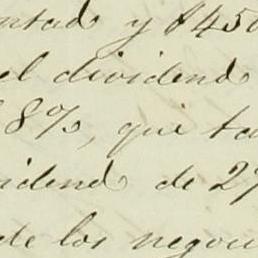 ntado y $450
el dividendo
8%, que ta
idendo de 2%
de los negoci